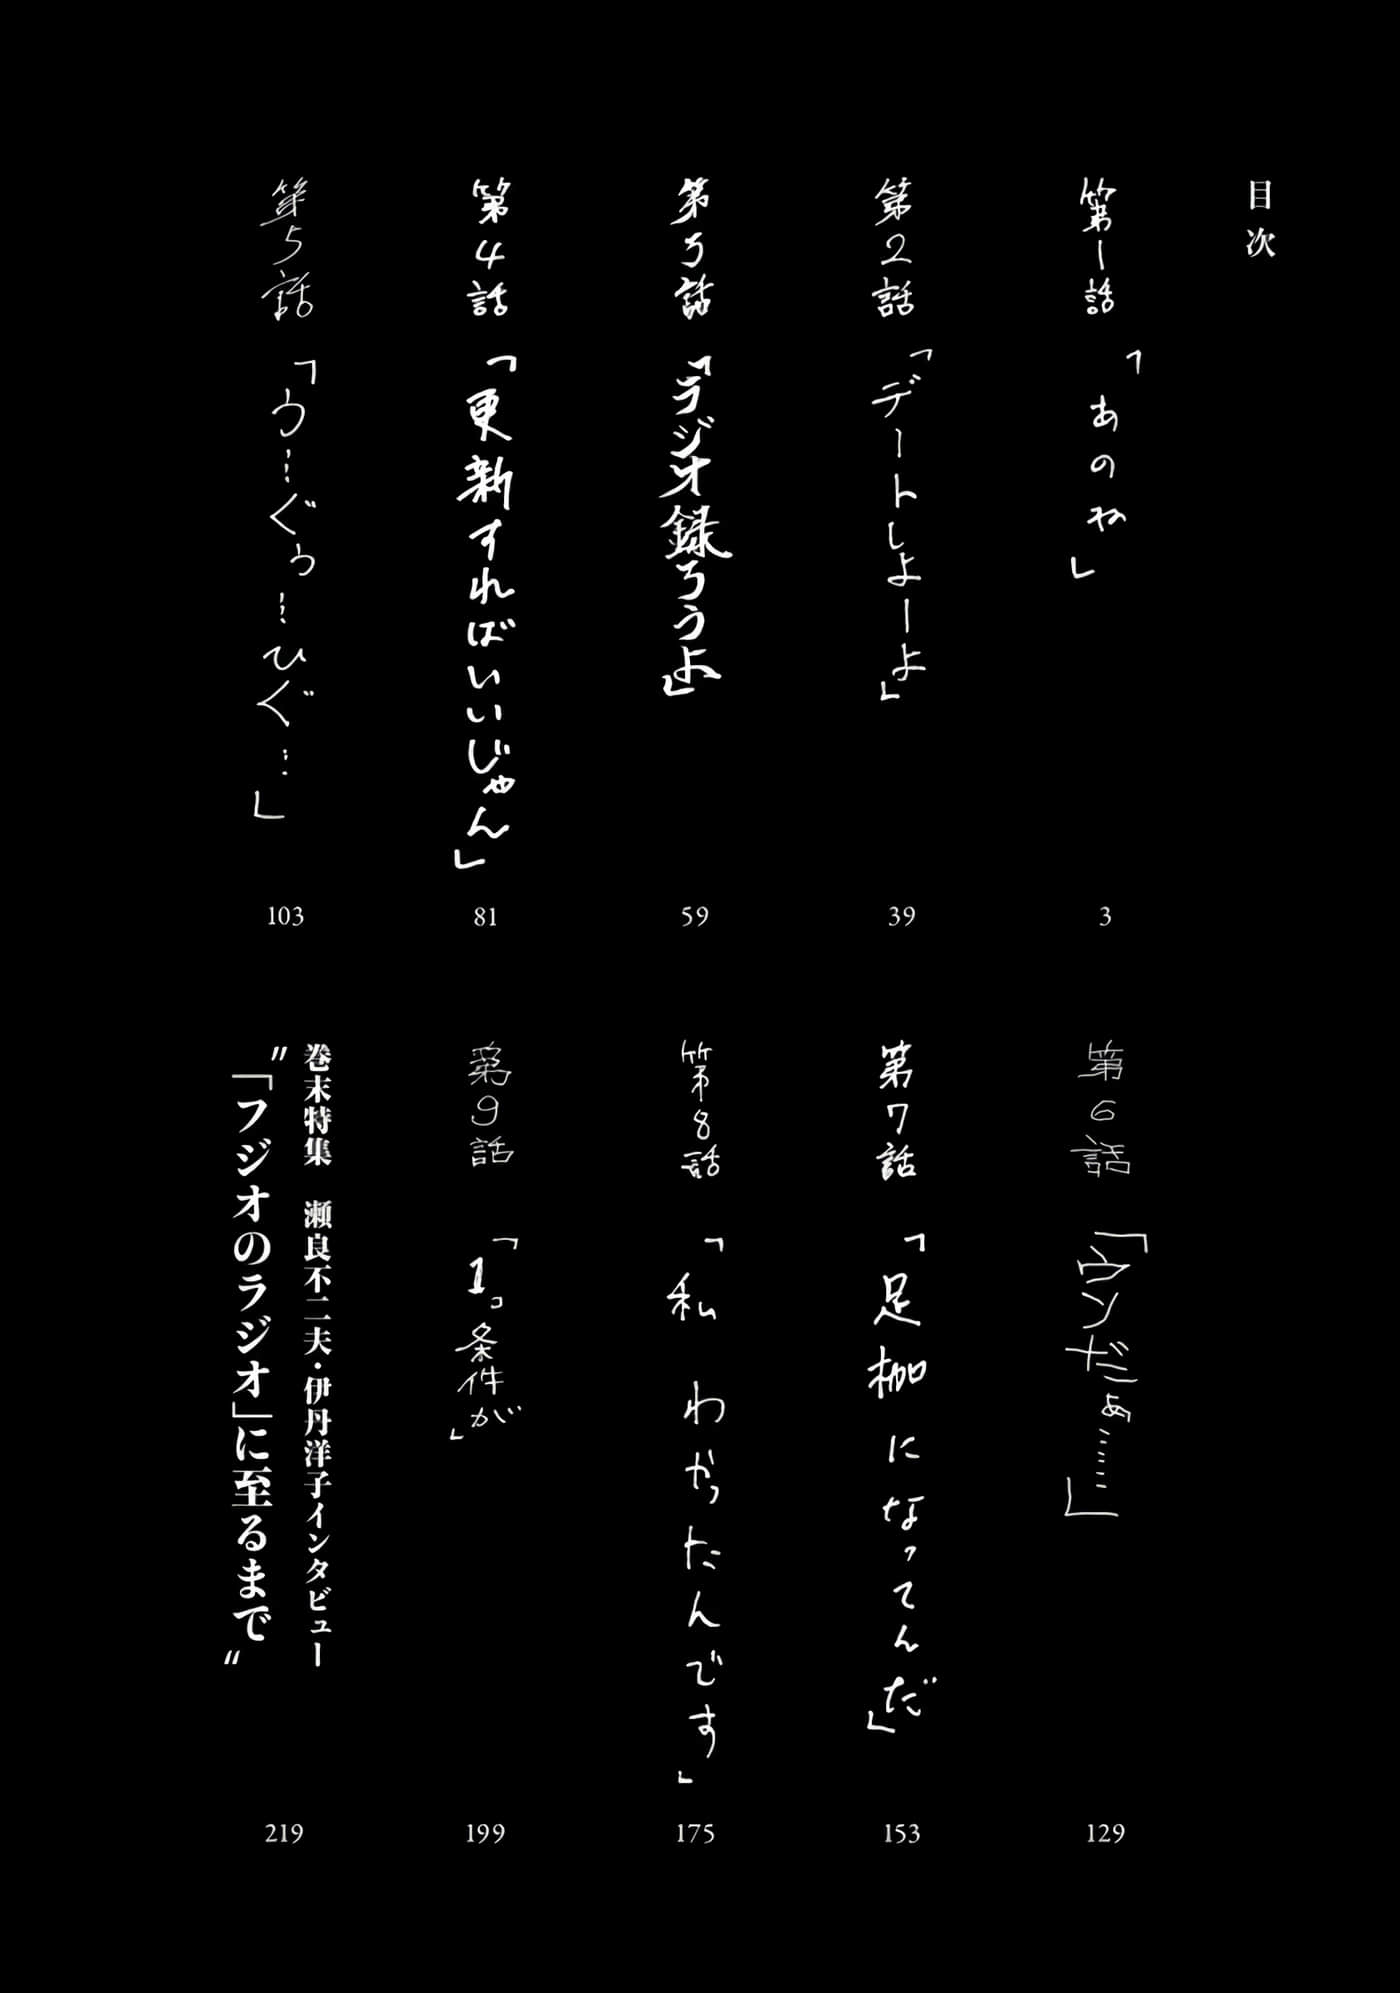 目次
第1話「あのね」 3
第2話「デートしよーよ」 39
第3話「ラジオ録ろうよ」 59
第4話「更新すればいいじゃん」 81
第5話「う…ぐぅ…ひぐ…」 103
第6話「ウンだこぁ……」 129
第7話「足枷になってんだ」 153
第8話「私 わかったんです」 175
第9話「1コ条件が」 199
巻末特集 瀬良不二夫・伊丹洋子インタビュー
〝「フジオのラジオ」に至るまで〟 219